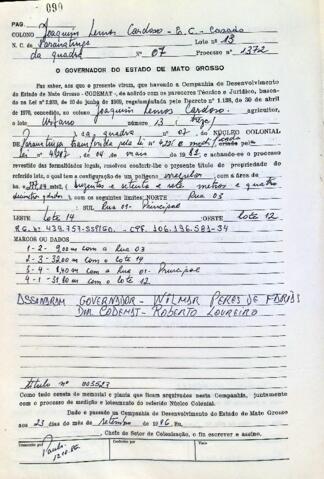 PAG. 099
COLONO Joaquim Lemos Cardoso - E.C. - Casado
N. C. de Paranatinga Lote nº 13
da quadra nº 07 Processo nº 1372
O GOVERNADOR DO ESTADO DE MATO GROSSO
Faz saber, aos que o presente virem, que havendo a Companhia de Desenvolvimento
do Estado de Mato Grosso - CODEMAT -, de acôrdo com os pareceres Técnico e Jurídico, baseados
na Lei nº 2.933, de 20 de junho de 1969, regulamentada pelo Decreto nº 1.138, de 30 de abril
de 1970, concedido ao colono Joaquim Lemos Cardoso, agricultor,
o lote Urbano número 13 (treze)
da quadra nº 07 do NÚCLEO COLONIAL
de Paranatinga criado pela
Lei nº de 04 de maio de e achando-se o processo
revestido das formalidades legais, resolveu conferir-lhe o presente título de propriedade do
referido lote, o qual tem a configuração de um polígono irregular com a área de
metros e quatro
com os seguintes limites: NORTE Rua 03
SUL Rua 01 - Principal
LESTE lote 14 OESTE lote 12
R.G. nº CPF. 106.136.581-34
MARCOS OU DADOS
1-2- 9,00 m com a Rua 03
2-3- 32,00 m com o lote 14
3-4- 8,40 m com a Rua 01- Principal
4-1- 31,80 m com o lote 12
ASSINARAM GOVERNADOR - WILMAR PERES DE FARIAS
DIR CODEMAT - ROBERTO LOUREIRO
título nº 003523
Como tudo consta do memorial e planta que ficam arquivados nesta Companhia, juntamente
com o processo de medição e loteamento do referido Núcleo Colonial.
Dado e passado na Companhia de Desenvolvimento do Estado de Mato Grosso
aos 23 dias do mês de setembro de 1986. Eu,
, Chefe do Setor de Colonização, o fiz escrever e assino.
Transcrito por Conferido por Visto
Paulo